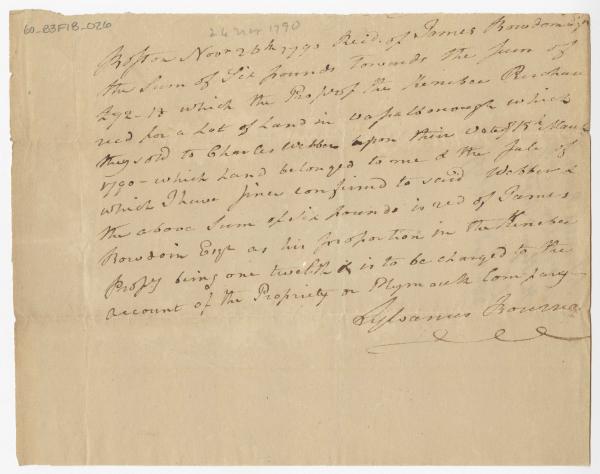 60-83F18-026
26 Nov 1790
Boston Novr 26th 1790 Recd. of James Bowdoin Esqr
the Sum of Six pounds Towards the Sum of
which the Propy of the Kenebec Purchase
recd for a Lot of Land in Vassalborough which
they sold to Charles Webber upon their Vote of March
1790 - which Land belonged to me & the Sale of
which I have since confirmed to said Webber &
the above Sum of Six pounds is recd of James
Bowdoin Esqr as his proportion in the Kenebec
Propy being one twelfth & is to be charged to the
account of the Propriety or Plymouth Company
Sylvanus Bourne